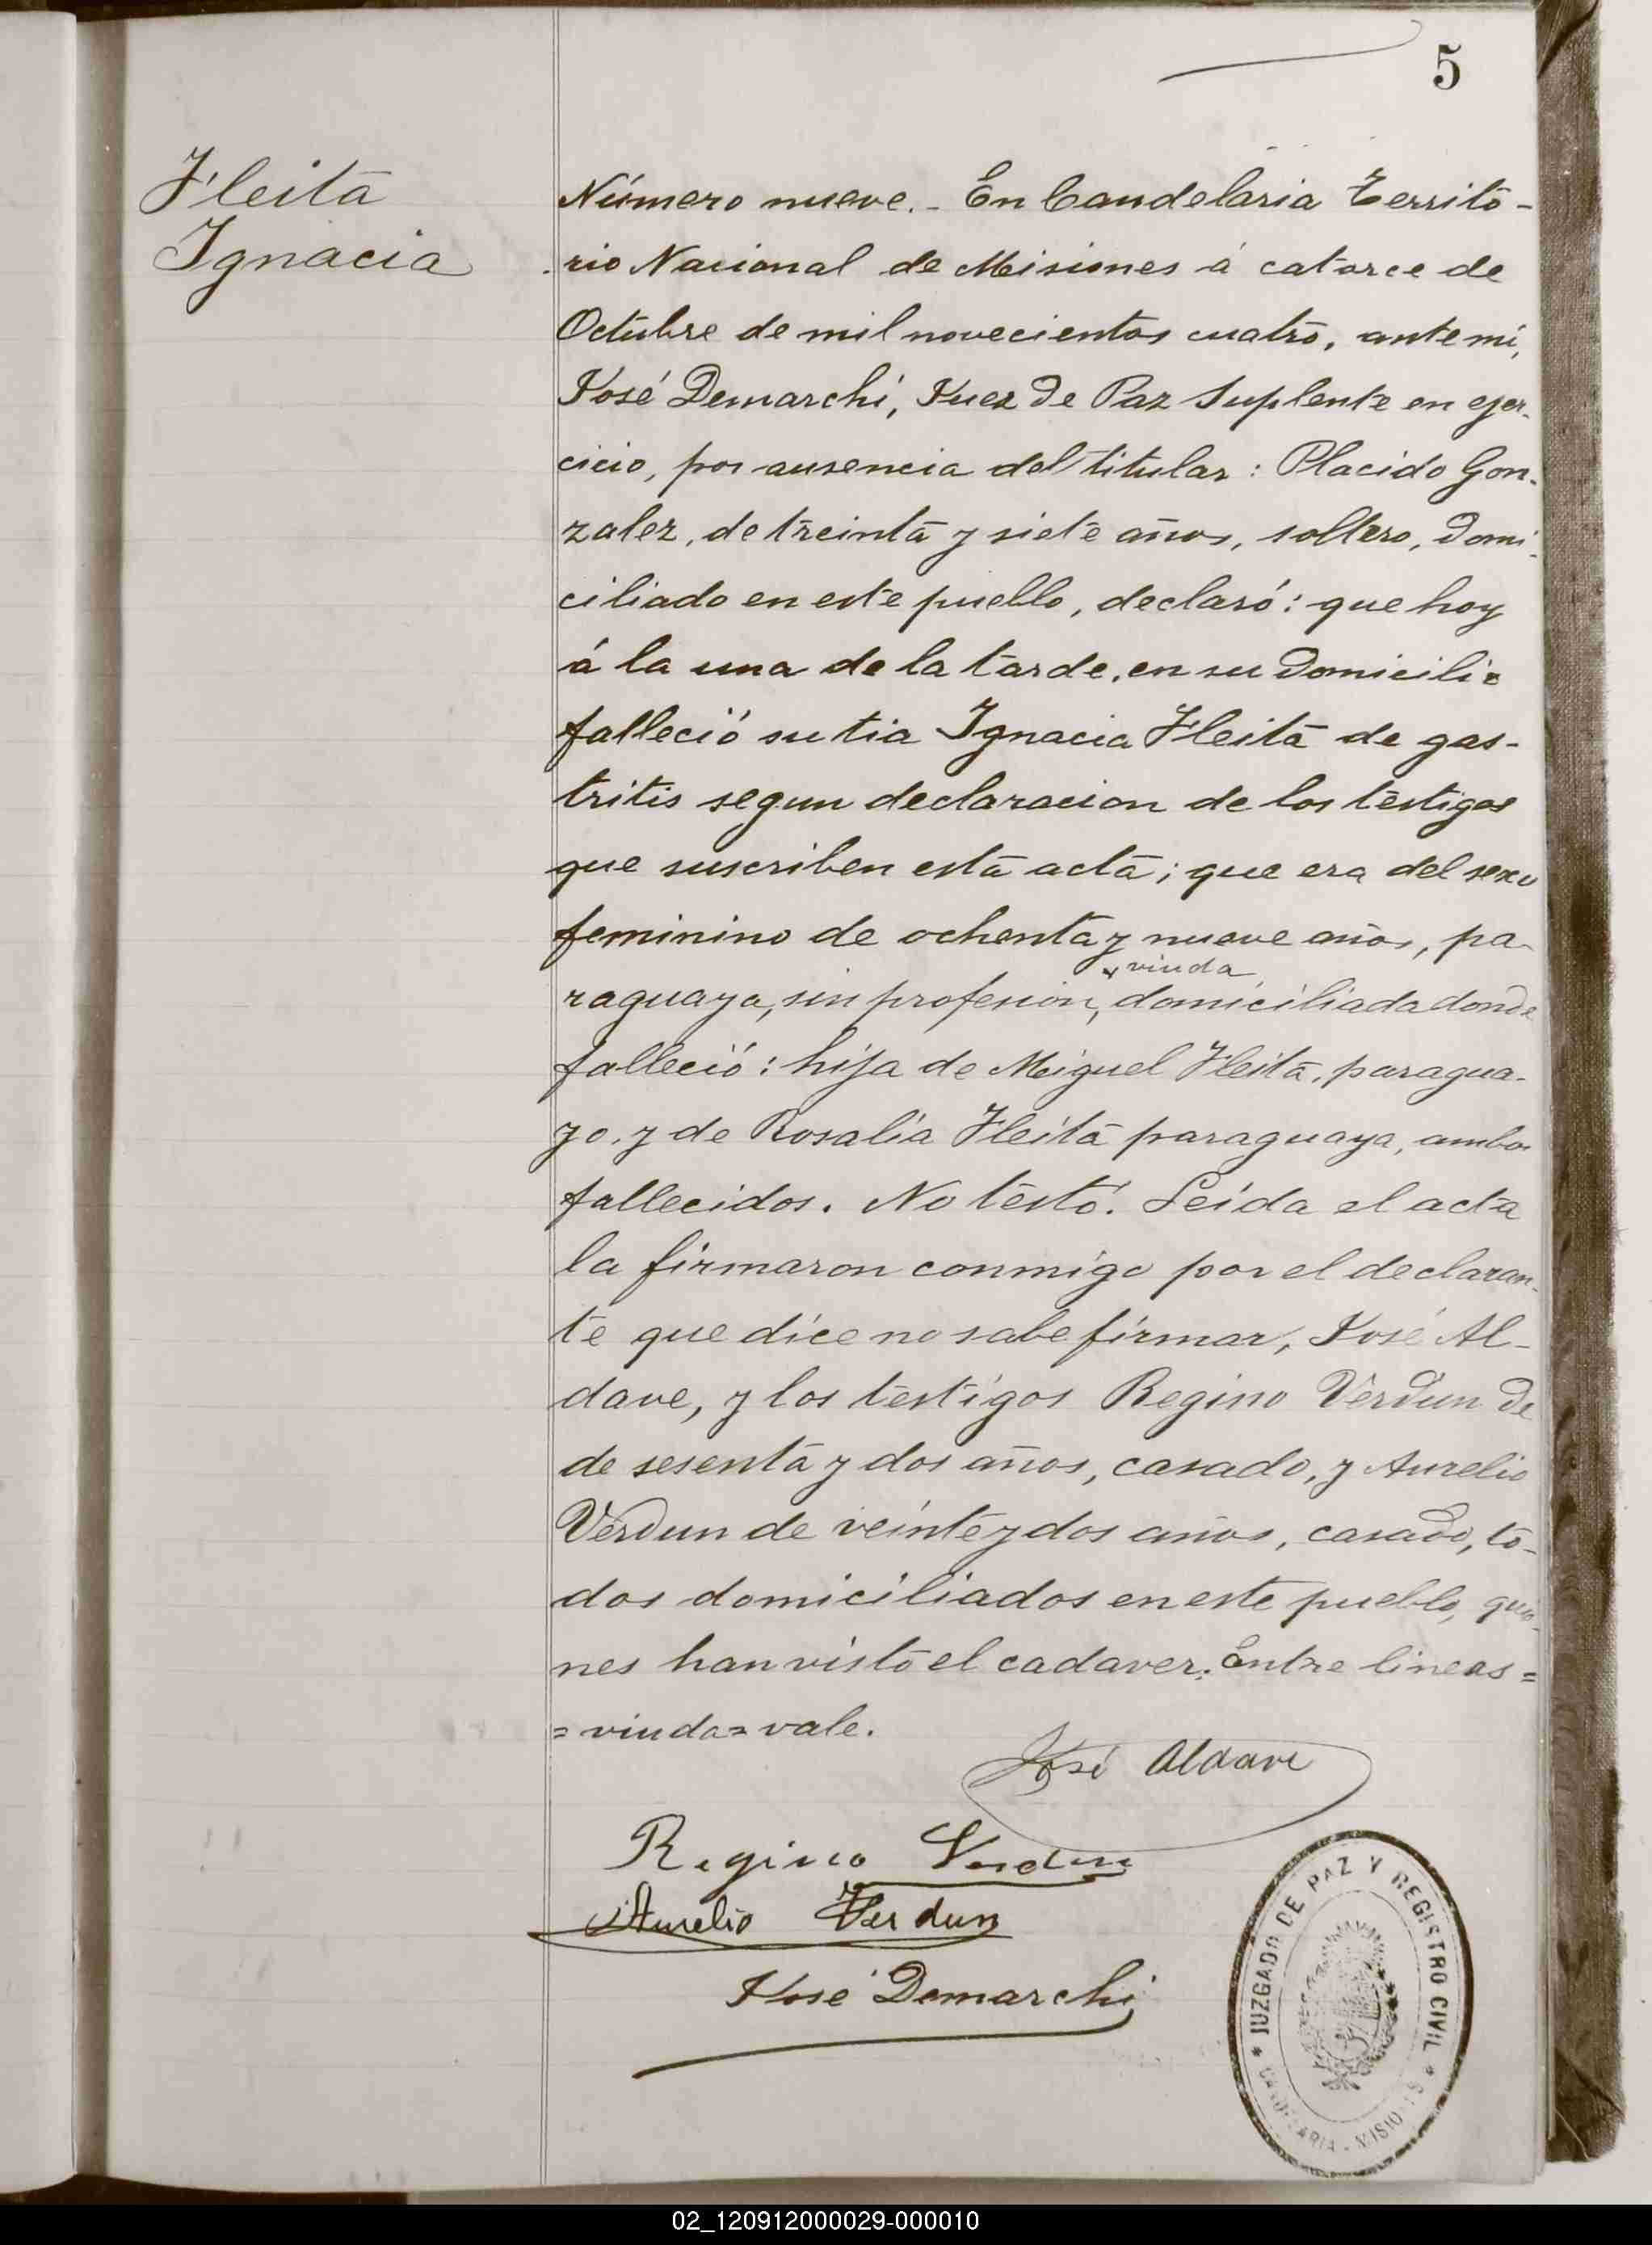 5
Fleita
Ignacia
Número nueve.- En Candelaria Territo-
rio Nacional de Misiones á catorce de
Octubre de mil novecientos cuatro, ante mí,
José Demarchi, Juez de Paz Suplente en ejer-
cicio, por ausencia del titular: Placido Gon-
zalez, de treinta y siete años, soltero, domi-
ciliado en este pueblo, declaró: que hoy
á la una de la tarde, en su domicilio
falleció su tia Ignacia Fleita de gas-
tritis segun declaracion de los testigos
que suscriben esta acta; que era del sexo
feminino de ochenta y nueve años, pa-
viuda
raguaya, sin profesion, domiciliada donde
falleció: hija de Miguel Fleita, paragua-
yo, y de Rosalía Fleita paraguaya, ambos
fallecidos. No testó. Leída el acta
la firmaron conmigo por el declaran-
te que dice no sabe firmar, José Al-
dave, y los testigos Regino Verdun de
de sesenta y dos años, casado, y Aurelio
Verdun de veinte y dos años, casado, to-
dos domiciliados en este pueblo, quie-
nes han visto el cadaver. Entre lineas=
=viuda=vale.
José Aldave
Regino Verdun
Aurelio Verdun
José Demarchi
JUZGADO DE PAZ Y REGISTRO CIVIL
CANDELARIA - MISIONES
02_120912000029-000010